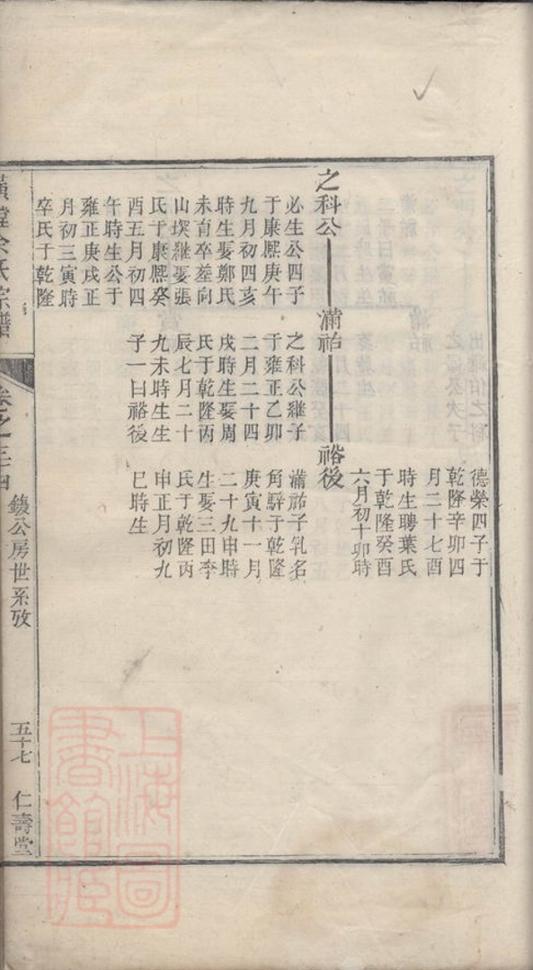 德榮四子于
乾隆辛卯四
月二十七酉
時生聘葉氏
于乾隆癸酉
六月初十卯時
之科公 滿祐 裕後
必生公四子
于康熙庚午
九月初四亥
時生娶鄭氏
未育卒塟向
山㙇雖娶張
氏于康熙癸
酉五月初四
午時生公于
雍正庚戌正
月初三寅時
卒氏于乾隆
之科公繼子
于雍正乙卯
二月二十四
戌時生娶周
氏于乾隆丙
辰七月二十
九未時生生
子一曰裕後
滿祐子乳名
角騂于乾隆
庚寅十一月
二十九申時
生娶三田李
氏于乾隆丙
申正月初九
巳時生
余氏宗譜
卷之三十四
鐓公房世系攷
五十七
仁壽堂
上海圖書館藏